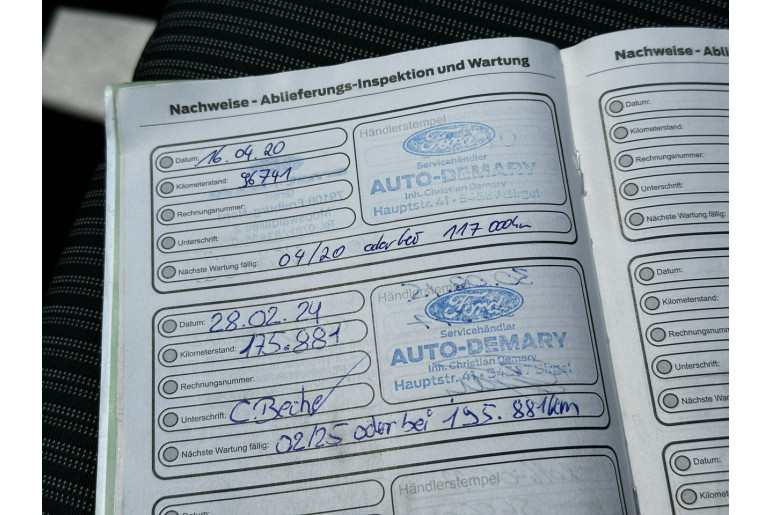 Nachweise - Ablieferungs-Inspektion und Wartung
Datum: 16.04.20
Kilometerstand: 96741
Rechnungsnummer:
Unterschrift:
Nächste Wartung fällig: 04/20 oder bei 117 000km
Händlerstempel
Ford
Servicehändler
AUTO-DEMARY
Inh. Christian Demary
Hauptstr. 41 - Birgel
Datum: 28.02.24
Kilometerstand: 175.881
Rechnungsnummer:
Unterschrift: C Becher
Nächste Wartung fällig: 02/25 oder bei 195.881km
Händlerstempel
Ford
Servicehändler
AUTO-DEMARY
Inh. Christian Demary
Hauptstr. 41 - Birgel
Datum:
Händlerstempel
Nachweise - Abli
Datum:
Kilometerstand:
Rechnungsnummer:
Unterschrift:
Nächste Wartung fällig:
Datum:
Kilometerstand:
Rechnungsnumm
Unterschrift:
Nächste Wartu
Datum:
Kilomete